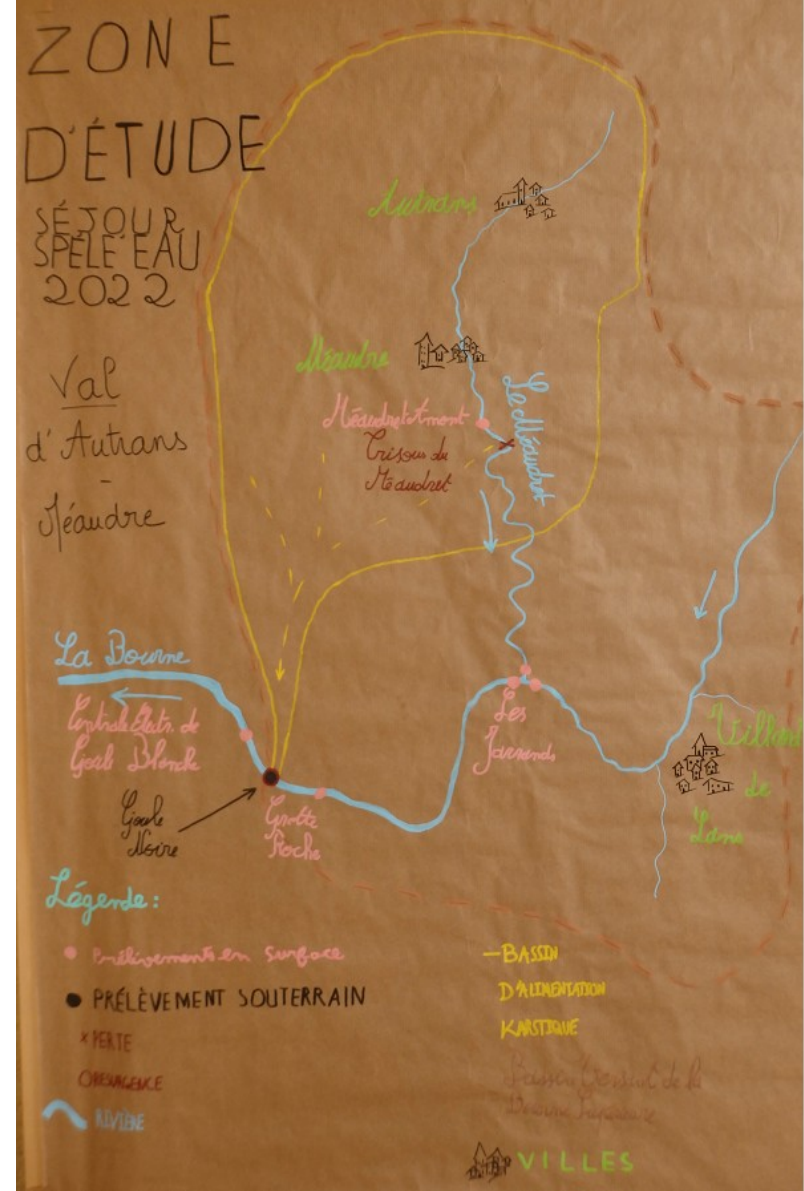 ZONE
D'ÉTUDE
SÉJOUR
SPÉLÉ'EAU
2022
Val
d'Autrans
-
Méaudre
Autrans
Méaudre
Le Méaudret
Méaudret Amont
Trisous du
Méaudret
La Bourne
Centrale Électr. de
Goule Blanche
Goule
Noire
Grotte
Roche
Les
Jarrands
Villard
de
Lans
Légende:
Prélèvements en surface
PRÉLÈVEMENT SOUTERRAIN
PERTE
RESURGENCE
RIVIÈRE
BASSIN
D'ALIMENTATION
KARSTIQUE
Bassin Versant de la
Bourne
VILLES